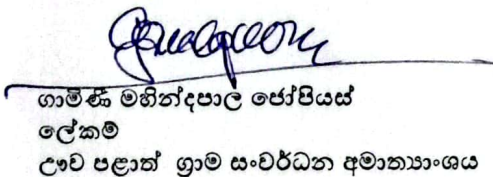 ගාමිණී මහින්දපාල ජෝපියස්
ලේකම්
ඌව පළාත් ග්‍රාම සංවර්ධන අමාත්‍යාංශය